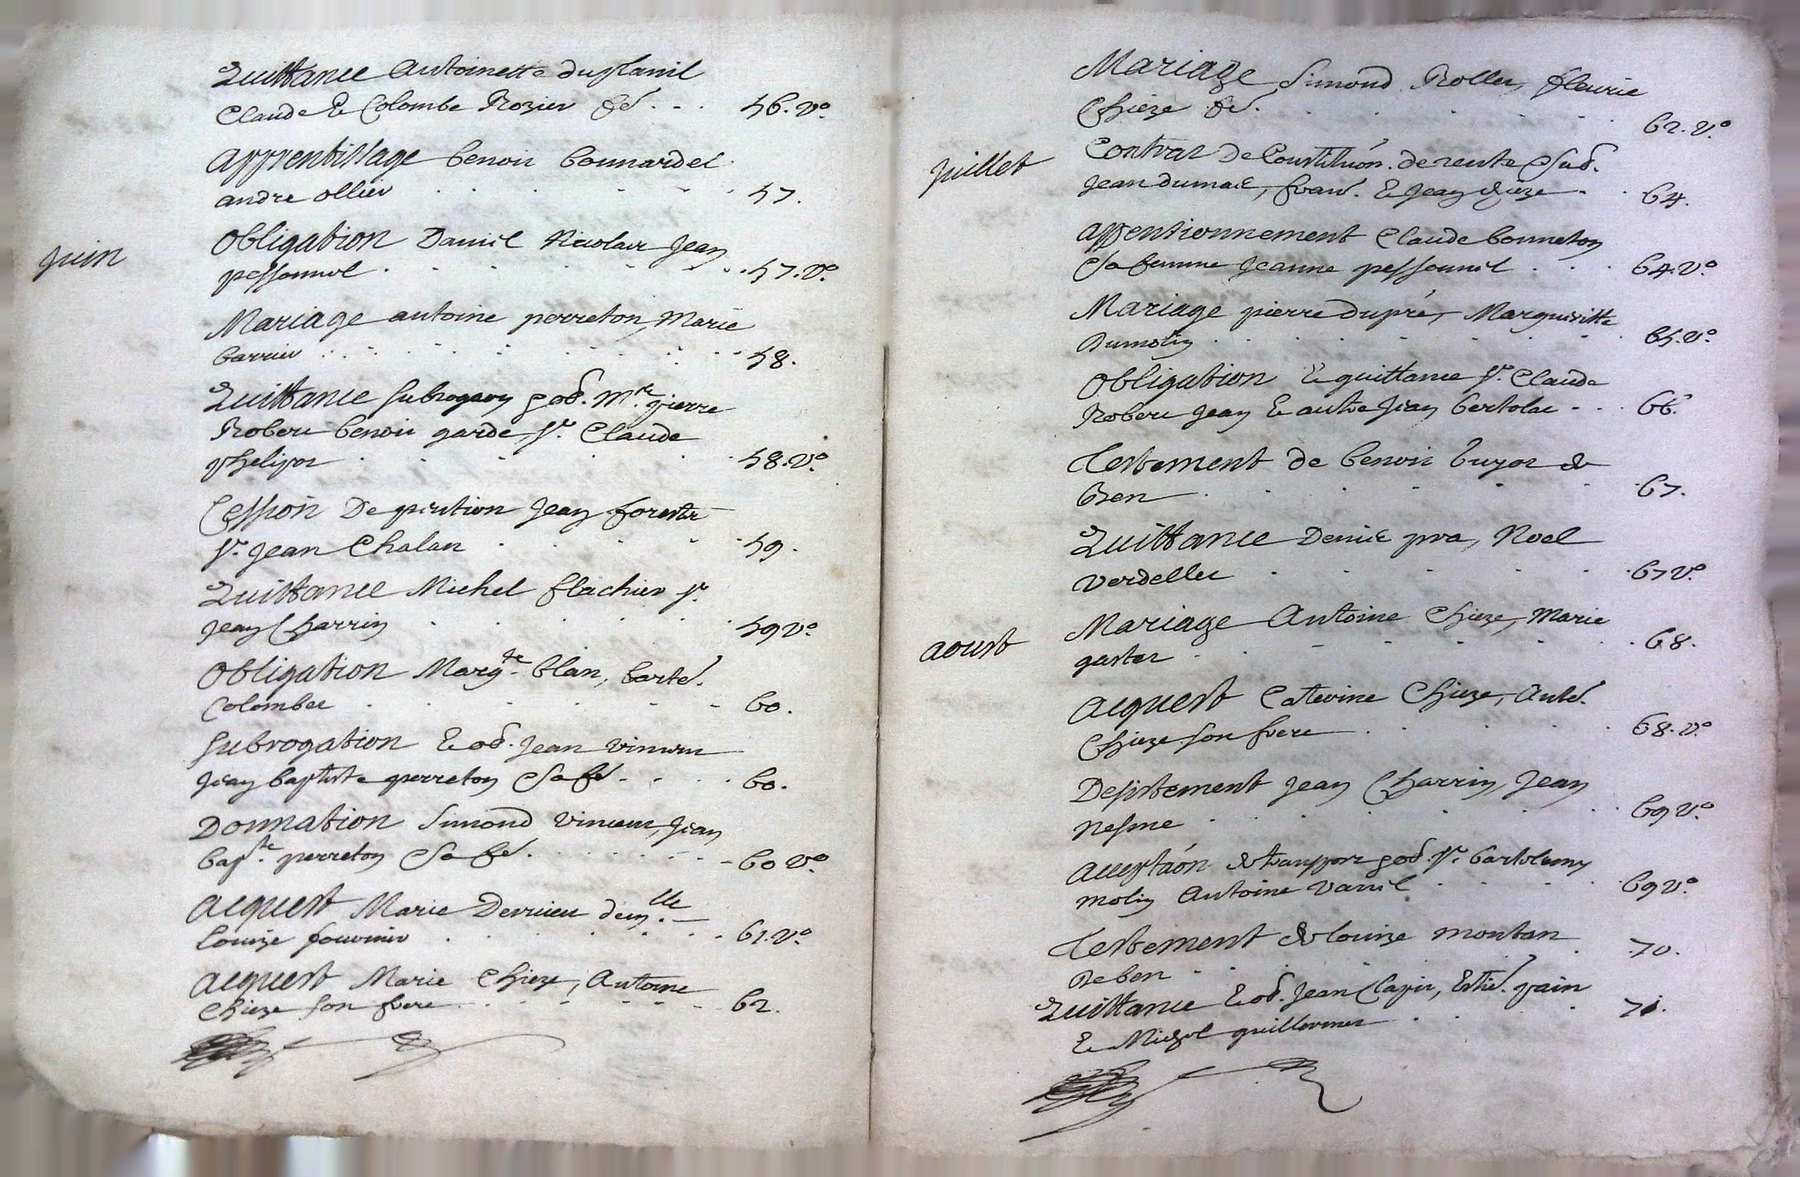 Quittance Antoinette Duplanil
Claude & Colombe Rozier &c. 56. v°.
Apprentissage benoit bonnardel
andre ollier 57.
juin
Obligation Daniel Nicolas Jean
pessonnel 57. v°.
Mariage antoine perreton, Marie
barrier 58.
Quittance subrogaon god. Mre. pierre
Robert benoit garde, Sr. Claude
phelipon 58. v°.
Cession De pention Jean forestier
Sr. Jean Chalan 59.
Quittance Michel flachier Sr.
Jean Charrin 59 v°.
Obligation Margte. blan, barté.
Colombet 60.
Subrogation & od. Jean vincent
Jean baptiste perreton & sa fe. 60.
Donnation Simond vincent, Jean
bapte. perreton & sa fe. 60 v°.
Acquest Marie Derrieu demlle.
Louize fournier 61. v°.
Acquest Marie Chieze, Antoine
Chieze son frere 62.
Mariage Simond Rollet, fleurie
Chieze &c. 62. v°.
juillet
Contrat de Constitution de rente
Jean dumas, & Jean chieze 64.
appentionnement Claude bonneton
& sa femme Jeanne pessonnel 64. v°.
Mariage pierre dupré, Margueritte
Dumolin 65. v°.
Obligation & quittance Sr. Claude
Robert Jean & autre Jean bertolat 66.
Testement de benoit
67.
Quittance Denis pra, Noel
verdellet 67 v°.
aoust
Mariage Antoine Chieze, Marie
gaston 68.
Acquest Caterine Chieze, Anté.
Chieze son frere 68. v°.
Desistement Jean Charrin, Jean
Nesme 69 v°.
Sr. bartelemy
molin Antoine vanil 69 v°.
Testement de louize montan
70.
Quittance & od. Jean Clapit,
& Michel guillermet 71.